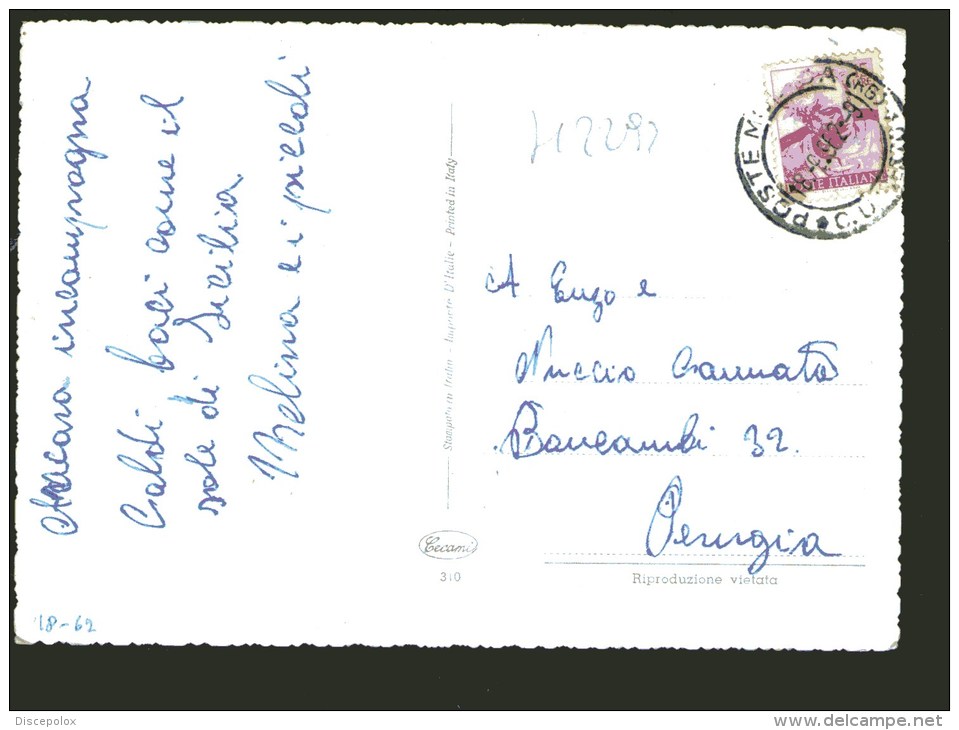 incampagna
Caldi baci come il
sole di Sicilia
Melina e i piccoli
18-62
Stampato in Italia - Importé D'Italie - Printed in Italy
Cecami
310
POSTE ITALIANE
POSTE M
CA (RG)
A Enzo e
Nuccio Cannata
Boncambi 32.
Perugia
Riproduzione vietata
Discepolox
www.delcampe.net